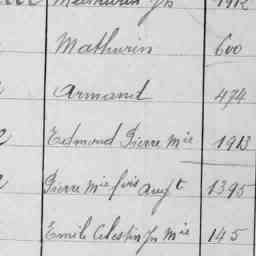 Mathurin Jn 1912
Mathurin 600
Armand 474
Edmond Pierre Mie 1913
Pierre Mie fois Augt 1395
Emile Célestin Jn Mie 145